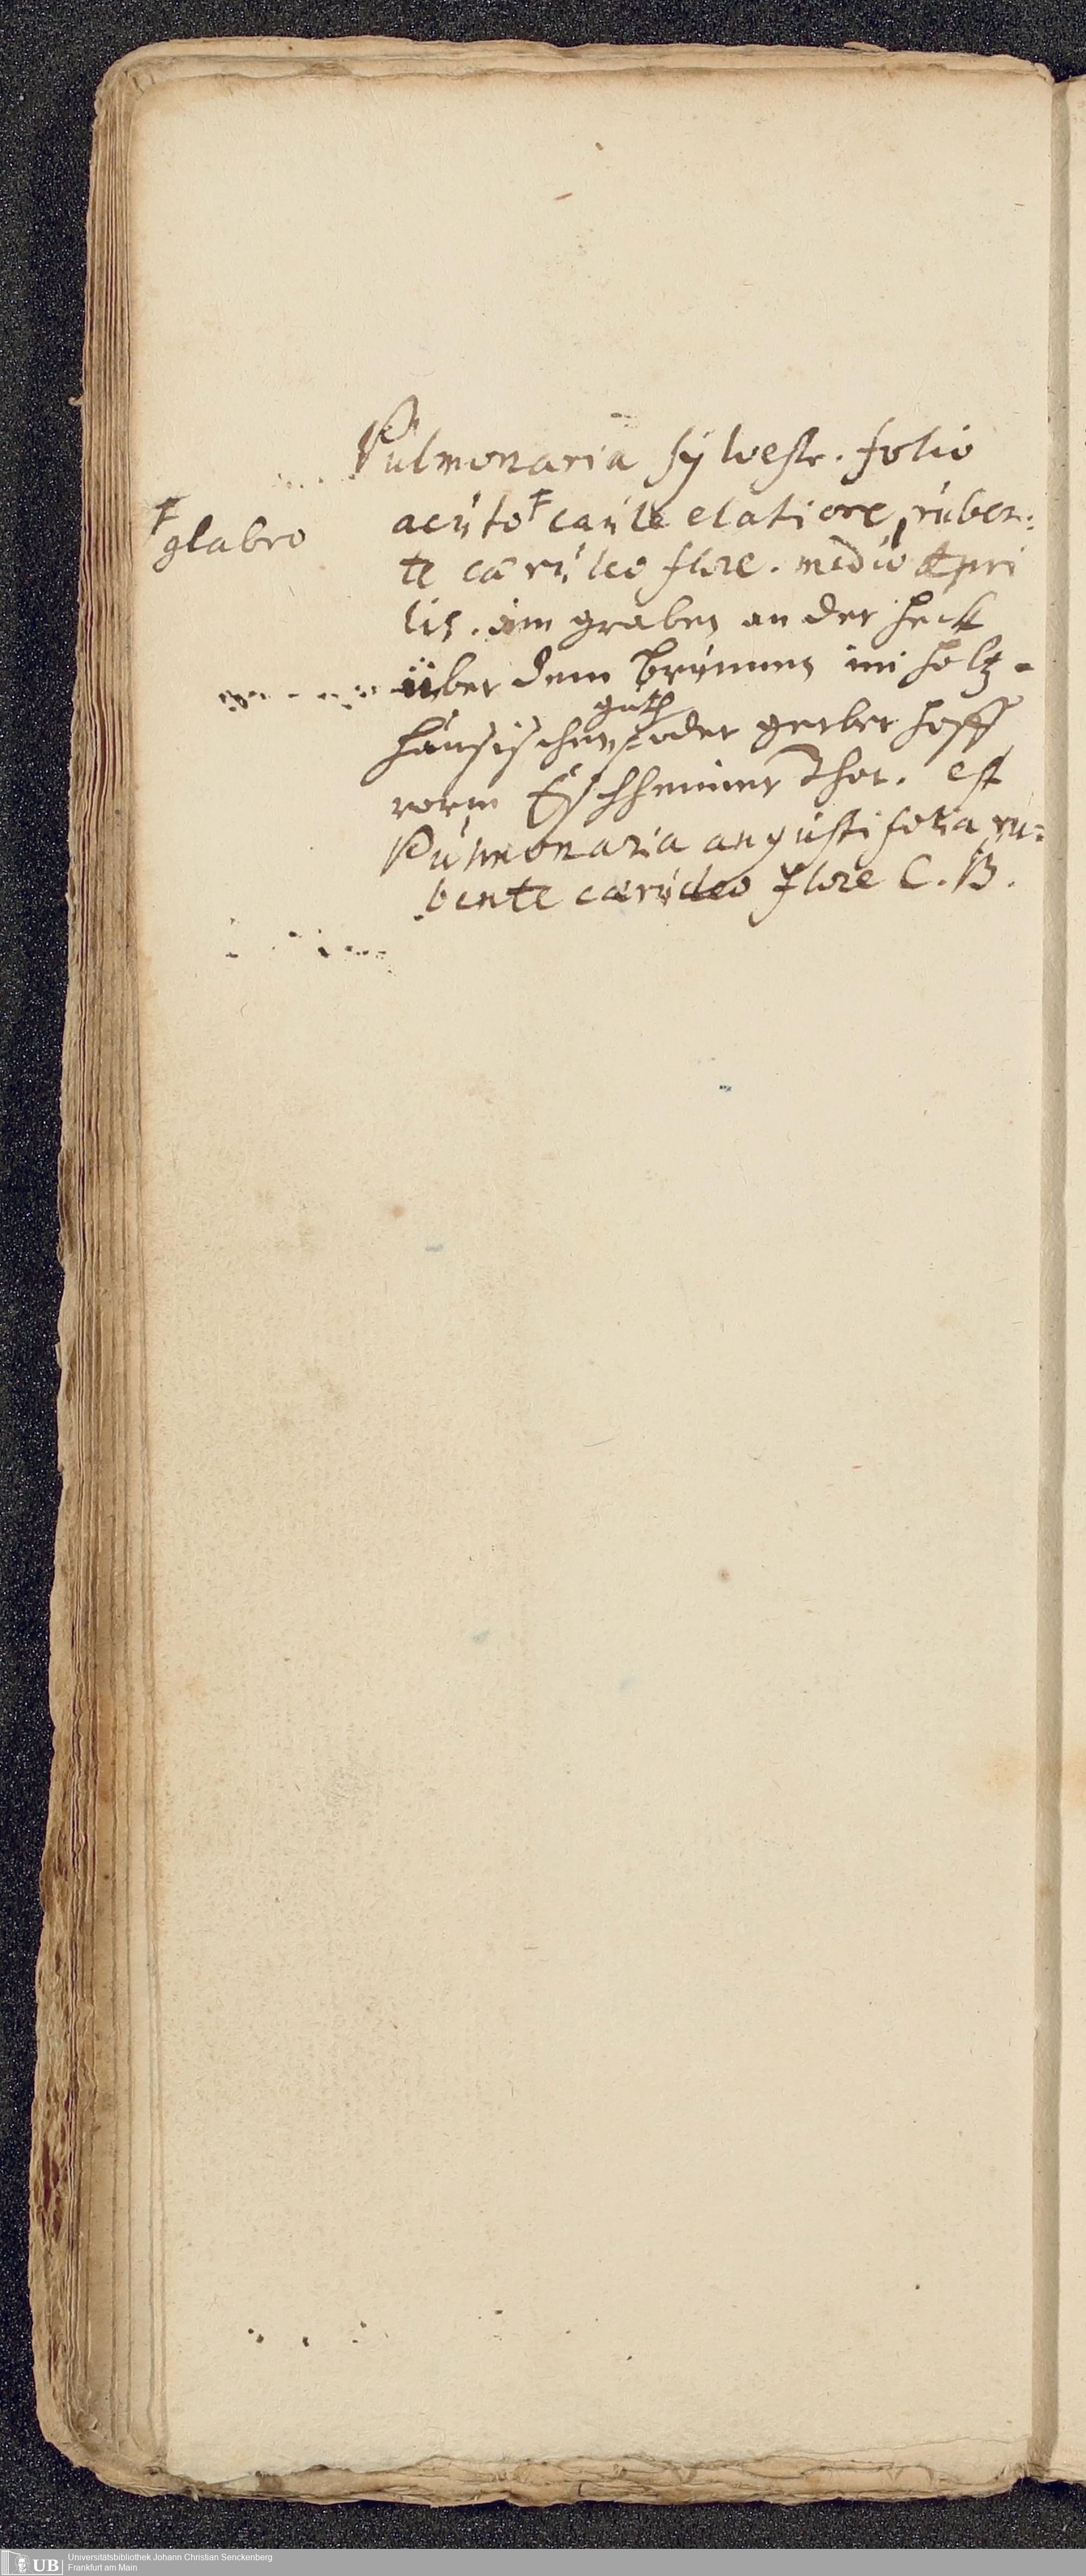 Pulmonaria sylvestr. folio
acuto F caule elatiore, ruben:
F glabro
te cæruleo flore. medio Apri
lis. im graben an der Heck
über dem brunnen im Holtz-
guth
häusischen F oder gerber Hoff
vorm Eschheimer Thor. est
Pulmonaria angustifolia ru:
bente cæruleo flore C. B.
UB
Universitätsbibliothek Johann Christian Senckenberg
Frankfurt am Main